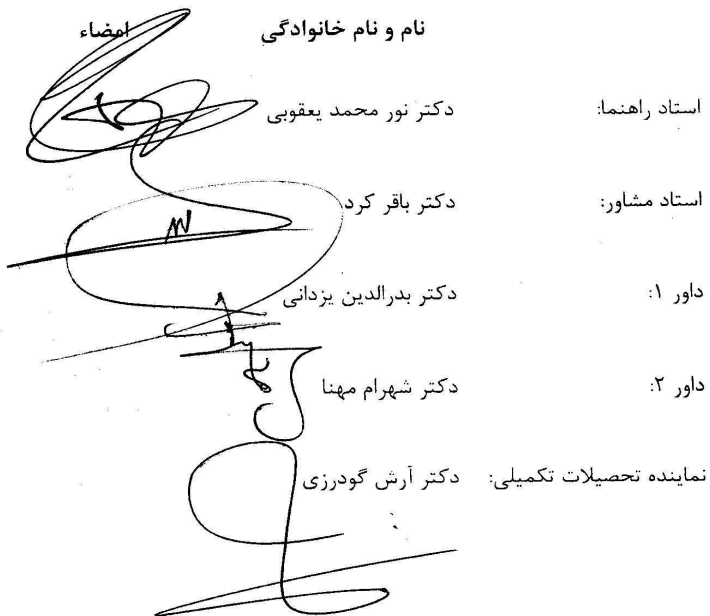 نام و نام خانوادگی امضاء
استاد راهنما: دکتر نور محمد یعقوبی
استاد مشاور: دکتر باقر کرد
داور ۱: دکتر بدرالدین یزدانی
داور ۲: دکتر شهرام مهنا
نماینده تحصیلات تکمیلی: دکتر آرش گودرزی